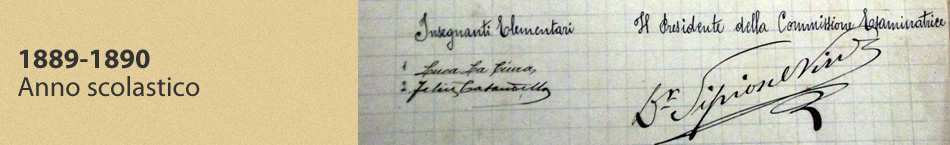 1889-1890
Anno scolastico
Insegnanti Elementari
Il Presidente della Commissione Esaminatrice
1 Luca La
2. Felice
Dr.